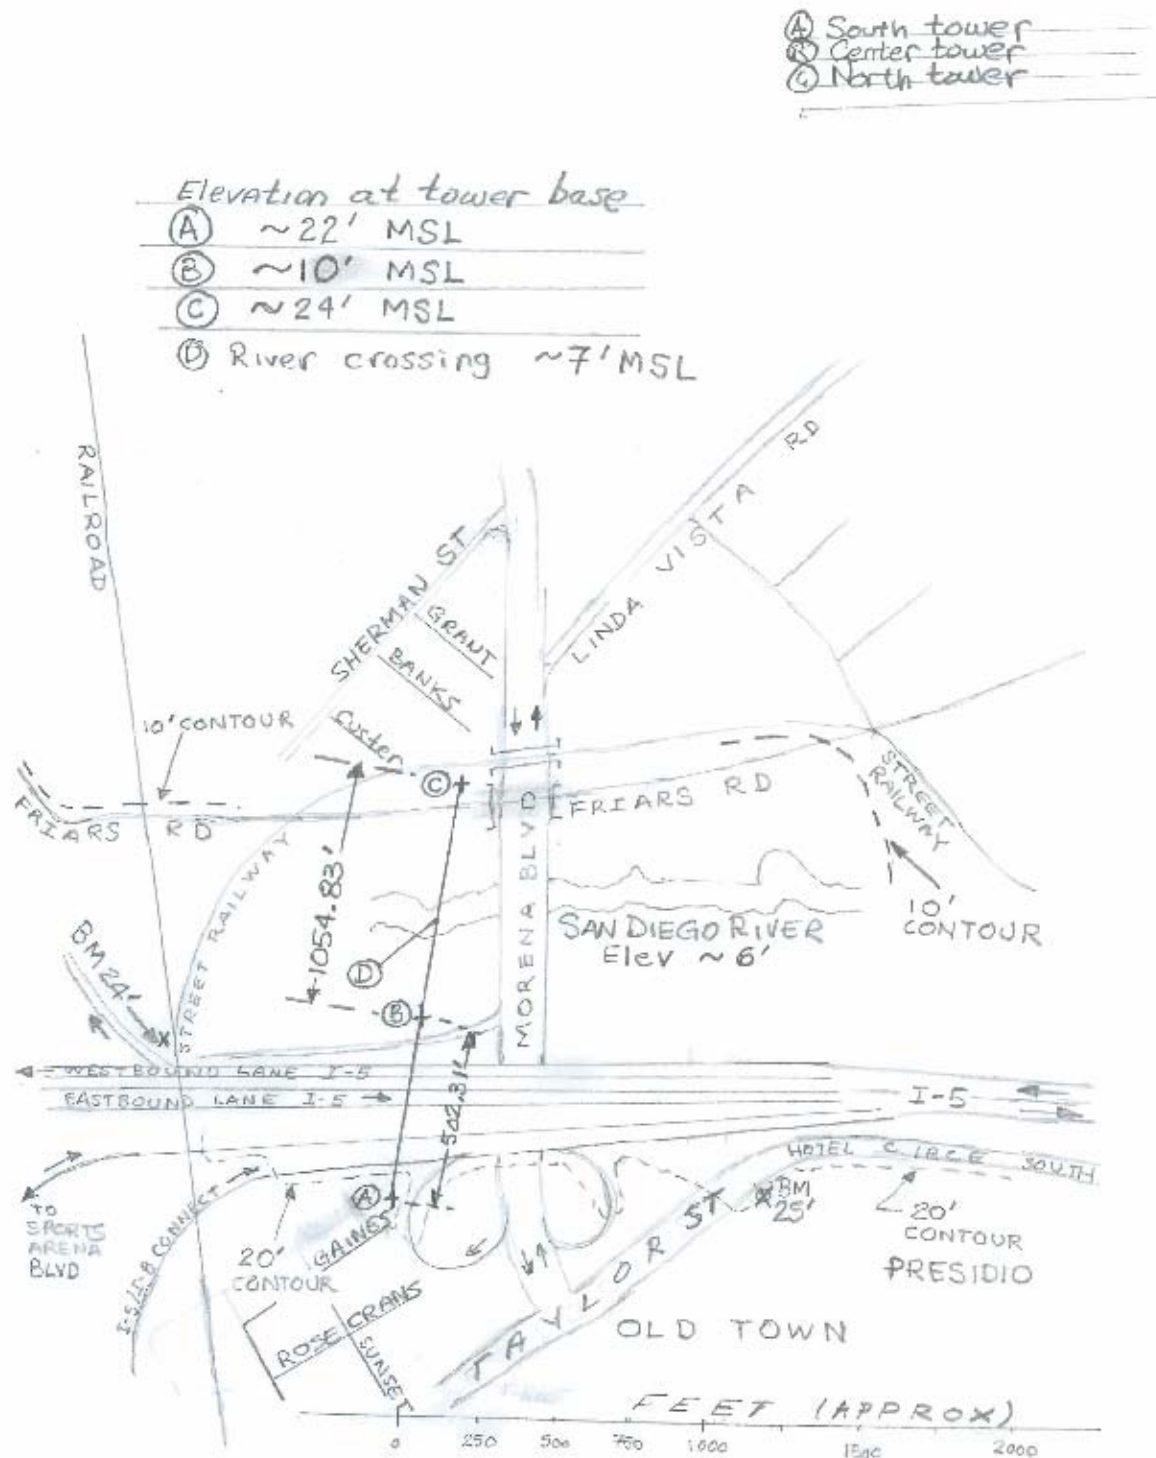 Ⓐ South tower
Ⓑ Center tower
Ⓒ North tower
Elevation at tower base
Ⓐ ~22' MSL
Ⓑ ~10' MSL
Ⓒ ~24' MSL
Ⓓ River crossing ~7' MSL
RAILROAD
SHERMAN ST
GRANT
BANKS
Custer
LINDA VISTA RD
10' CONTOUR
Ⓒ
FRIARS RD
FRIARS RD
MORENA BLVD
STREET RAILWAY
STREET RAILWAY
1054.83'
10'
CONTOUR
SAN DIEGO RIVER
Elev ~ 6'
BM 24'
X
Ⓓ
Ⓑ
WESTBOUND LANE I-5
EASTBOUND LANE I-5
I-5
502.31'
HOTEL CIRCE SOUTH
Ⓐ
BM
25'
20'
CONTOUR
PRESIDIO
TO
SPORTS
ARENA
BLVD
I-5/I-8 CONNECT
20'
CONTOUR
GAINES
ROSECRANS
SUNSET
TAYLOR ST
OLD TOWN
FEET (APPROX)
0 250 500 750 1000 1500 2000